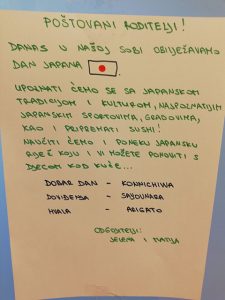 POŠTOVANI RODITELJI!
DANAS U NAŠOJ SOBI OBILJEŽAVAMO
DAN JAPANA
UPOZNATI ĆEMO SE SA JAPANSKOM
TRADICIJOM I KULTUROM, NAJPOZNATIJIM
JAPANSKIM SPORTOVIMA, GRADOVIMA,
KAO I PRIPREMATI SUSHI!
NAUČITI ĆEMO I PONEKU JAPANSKU
RIJEČ KOJU I VI MOŽETE PONOVITI S
DJECOM KOD KUĆE...
DOBAR DAN - KONNICHIWA
DOVIĐENJA - SAYOUNARA
HVALA - ARIGATO
ODGOJITELJI:
JELENA I MATIJA